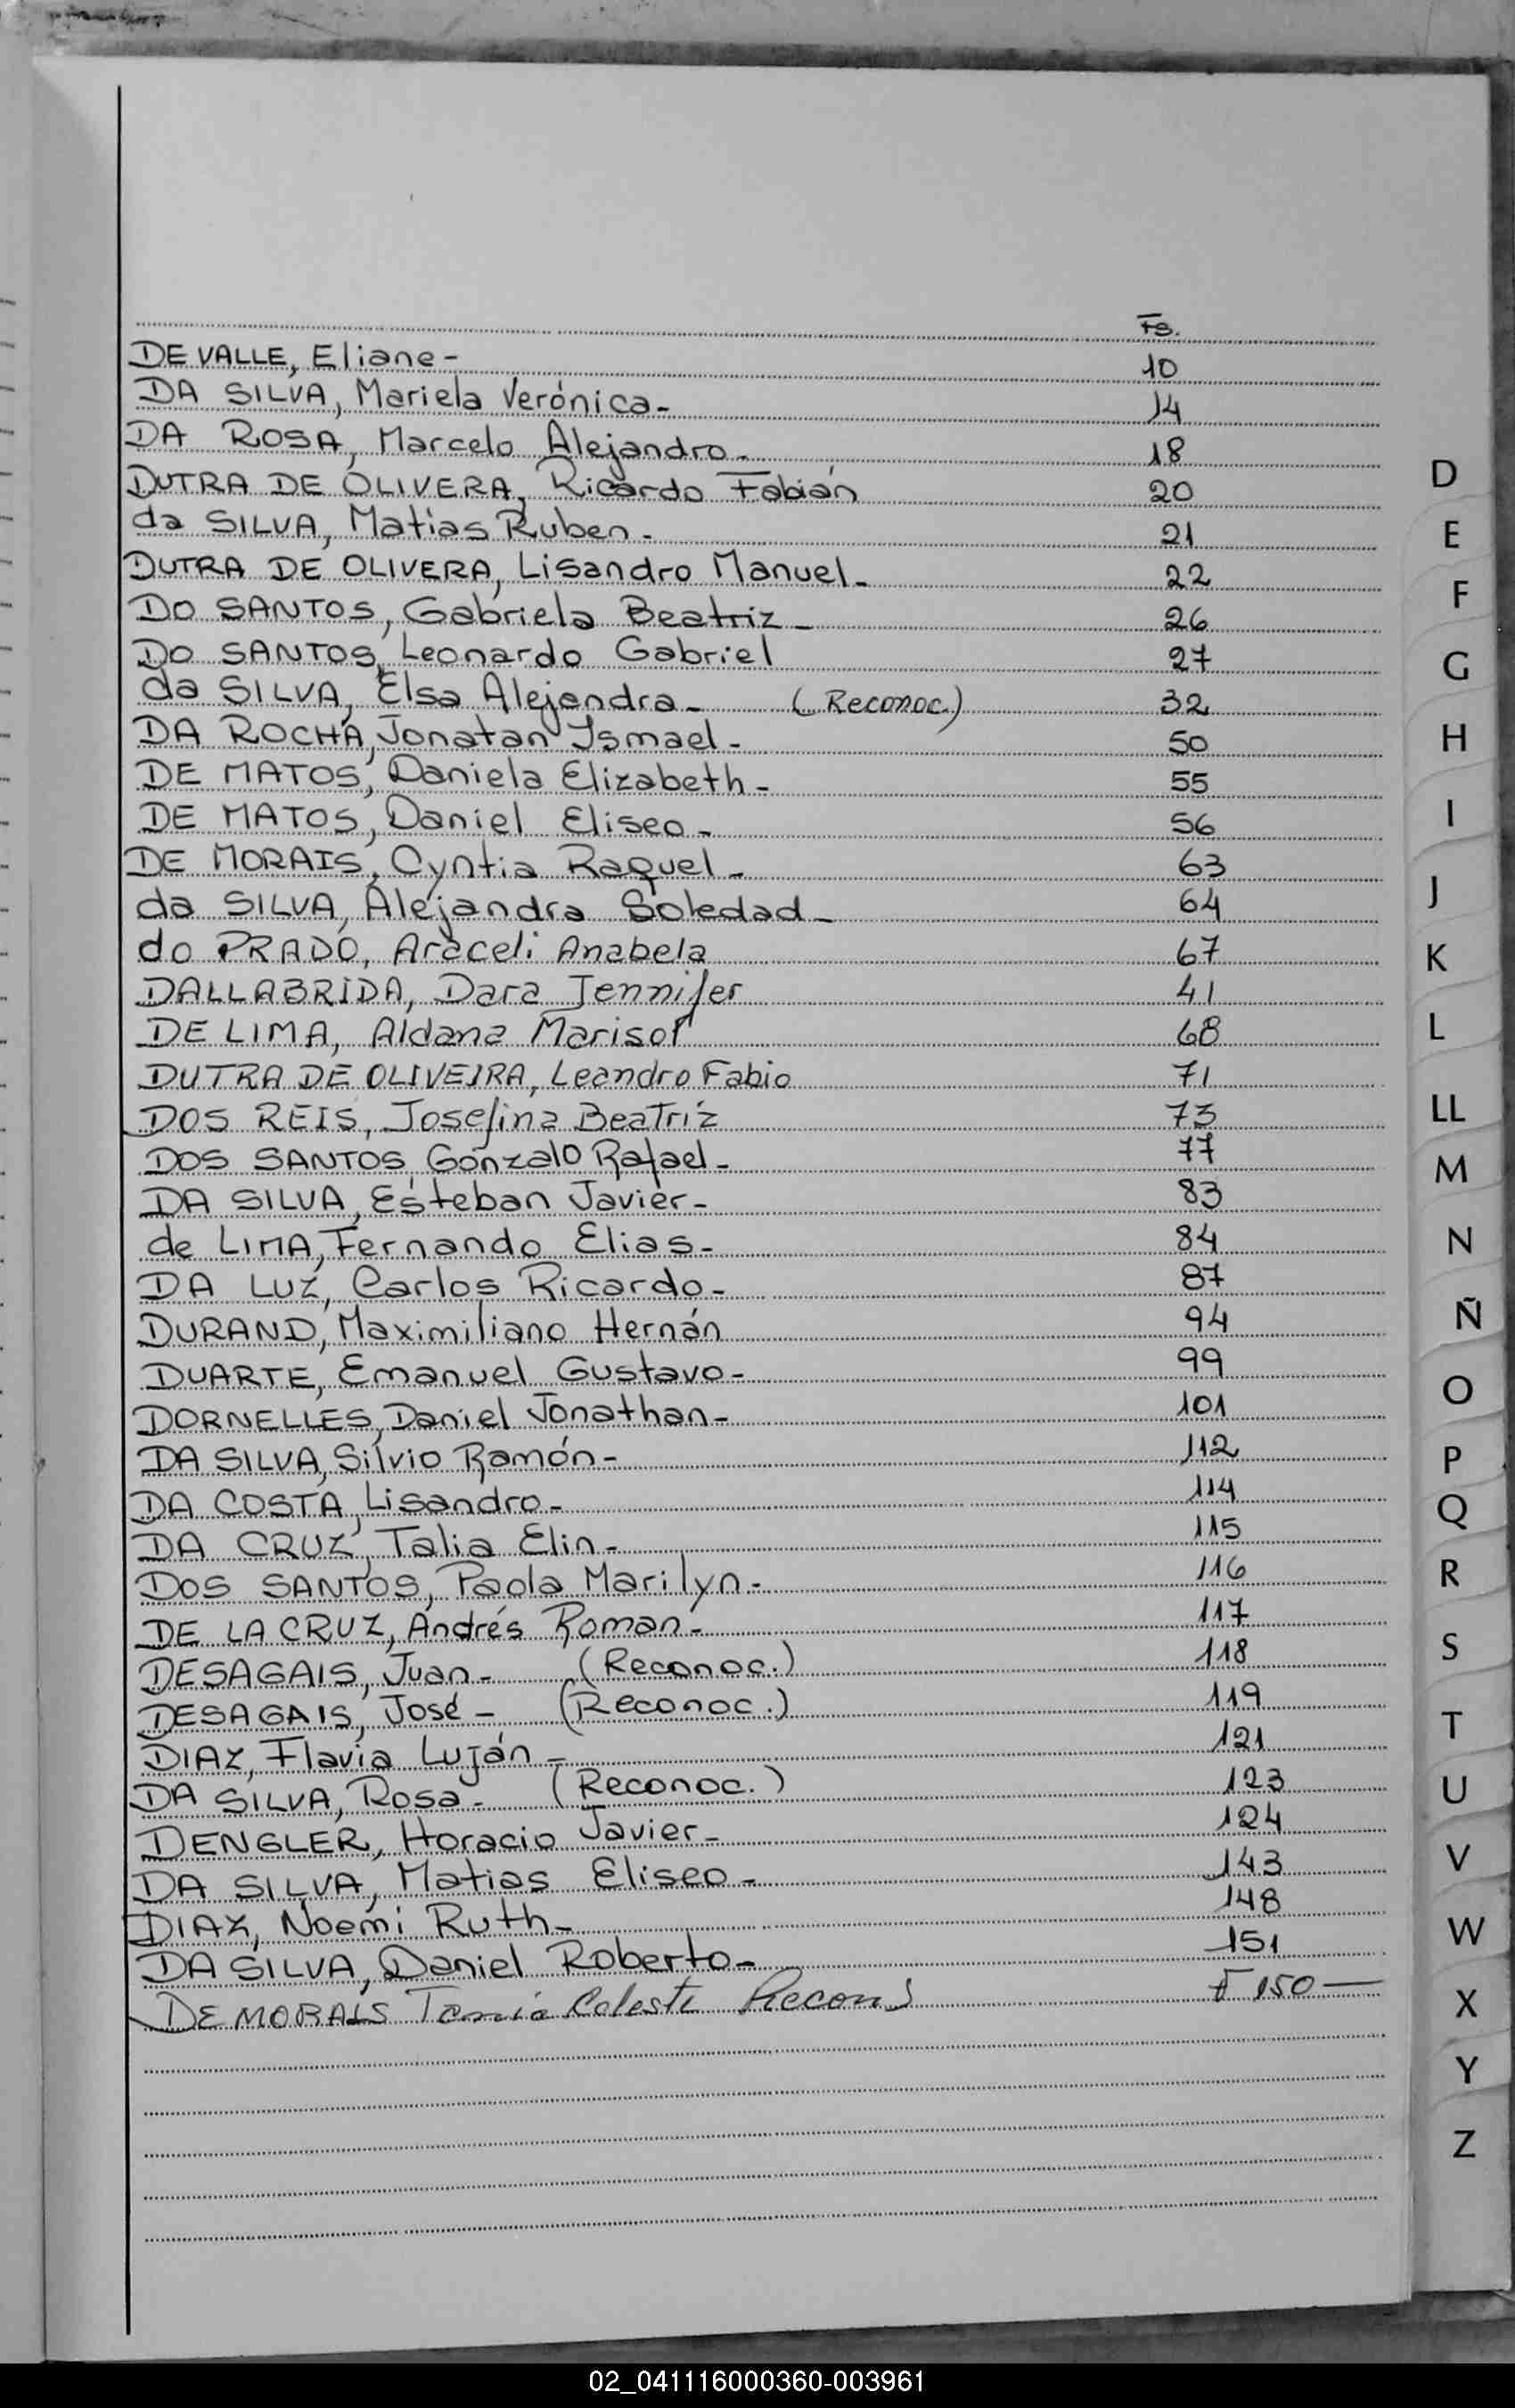 Fs.
DE VALLE, Eliane- 10
DA SILVA, Mariela Verónica- 14
DA ROSA, Marcelo Alejandro- 18
DUTRA DE OLIVERA, Ricardo Fabián 20
da SILVA, Matias Ruben- 21
DUTRA DE OLIVERA, Lisandro Manuel- 22
DO SANTOS, Gabriela Beatriz- 26
DO SANTOS, Leonardo Gabriel 27
da SILVA, Elsa Alejandra- (Reconoc.) 32
DA ROCHA, Jonatan Ismael- 50
DE MATOS, Daniela Elizabeth- 55
DE MATOS, Daniel Eliseo- 56
DE MORAIS, Cyntia Raquel- 63
da SILVA, Alejandra Soledad- 64
do PRADO, Araceli Anabela 67
DALLABRIDA, Dara Jennifer 41
DE LIMA, Aldana Marisol 68
DUTRA DE OLIVEIRA, Leandro Fabio 71
DOS REIS, Josefina Beatriz 73
DOS SANTOS, Gonzalo Rafael- 77
DA SILVA, Esteban Javier- 83
de LIMA, Fernando Elias- 84
DA LUZ, Carlos Ricardo- 87
DURAND, Maximiliano Hernán 94
DUARTE, Emanuel Gustavo- 99
DORNELLES, Daniel Jonathan- 101
DA SILVA, Silvio Ramón- 112
DA COSTA, Lisandro- 114
DA CRUZ, Talia Elin- 115
DOS SANTOS, Paola Marilyn- 116
DE LA CRUZ, Andrés Roman- 117
DESAGAIS, Juan- (Reconoc.) 118
DESAGAIS, José- (Reconoc.) 119
DIAZ, Flavia Luján- 121
DA SILVA, Rosa- (Reconoc.) 123
DENGLER, Horacio Javier- 124
DA SILVA, Matias Eliseo- 143
DIAZ, Noemi Ruth- 148
DA SILVA, Daniel Roberto- 151
DE MORAIS Tania Celeste Recon F 150—
D
E
F
G
H
I
J
K
L
LL
M
N
Ñ
O
P
Q
R
S
T
U
V
W
X
Y
Z
02_041116000360-003961